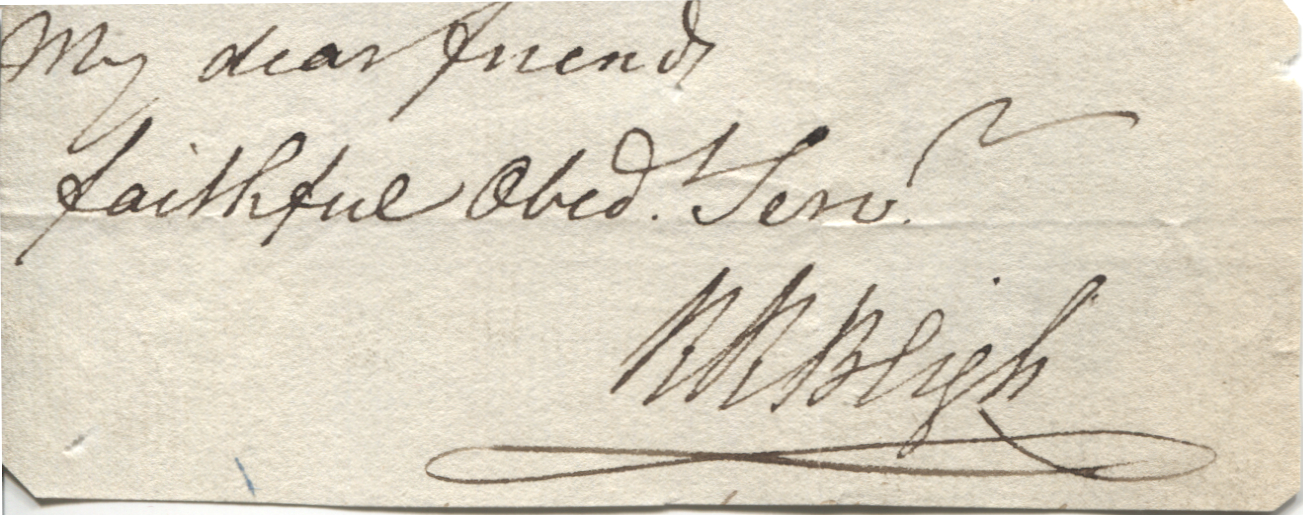 My dear friends
faithful Obed. Serv.
RRBligh